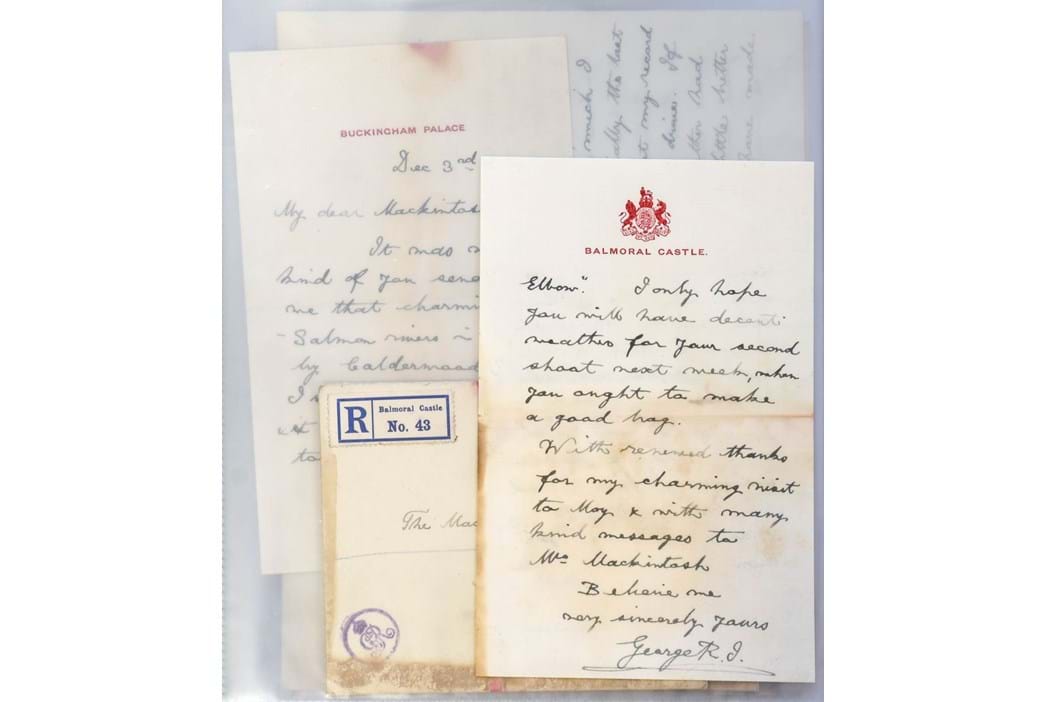 much I
ally the last
at my record
drive. If
ther had
little better
have made
BUCKINGHAM PALACE
Dec 3rd
My dear Mackintos
It was
kind of you send
me that charmi
- Salmon rivers
by Calderwood
I
it
to
R
Balmoral Castle
No. 43
The Mac
BALMORAL CASTLE.
Elbow". I only hope
you will have decent
weather for your second
shoot next week, when
you ought to make
a good bag.
With renewed thanks
for my charming visit
to Moy & with many
kind messages to
Mrs Mackintosh
Believe me
very sincerely yours
George R. I.